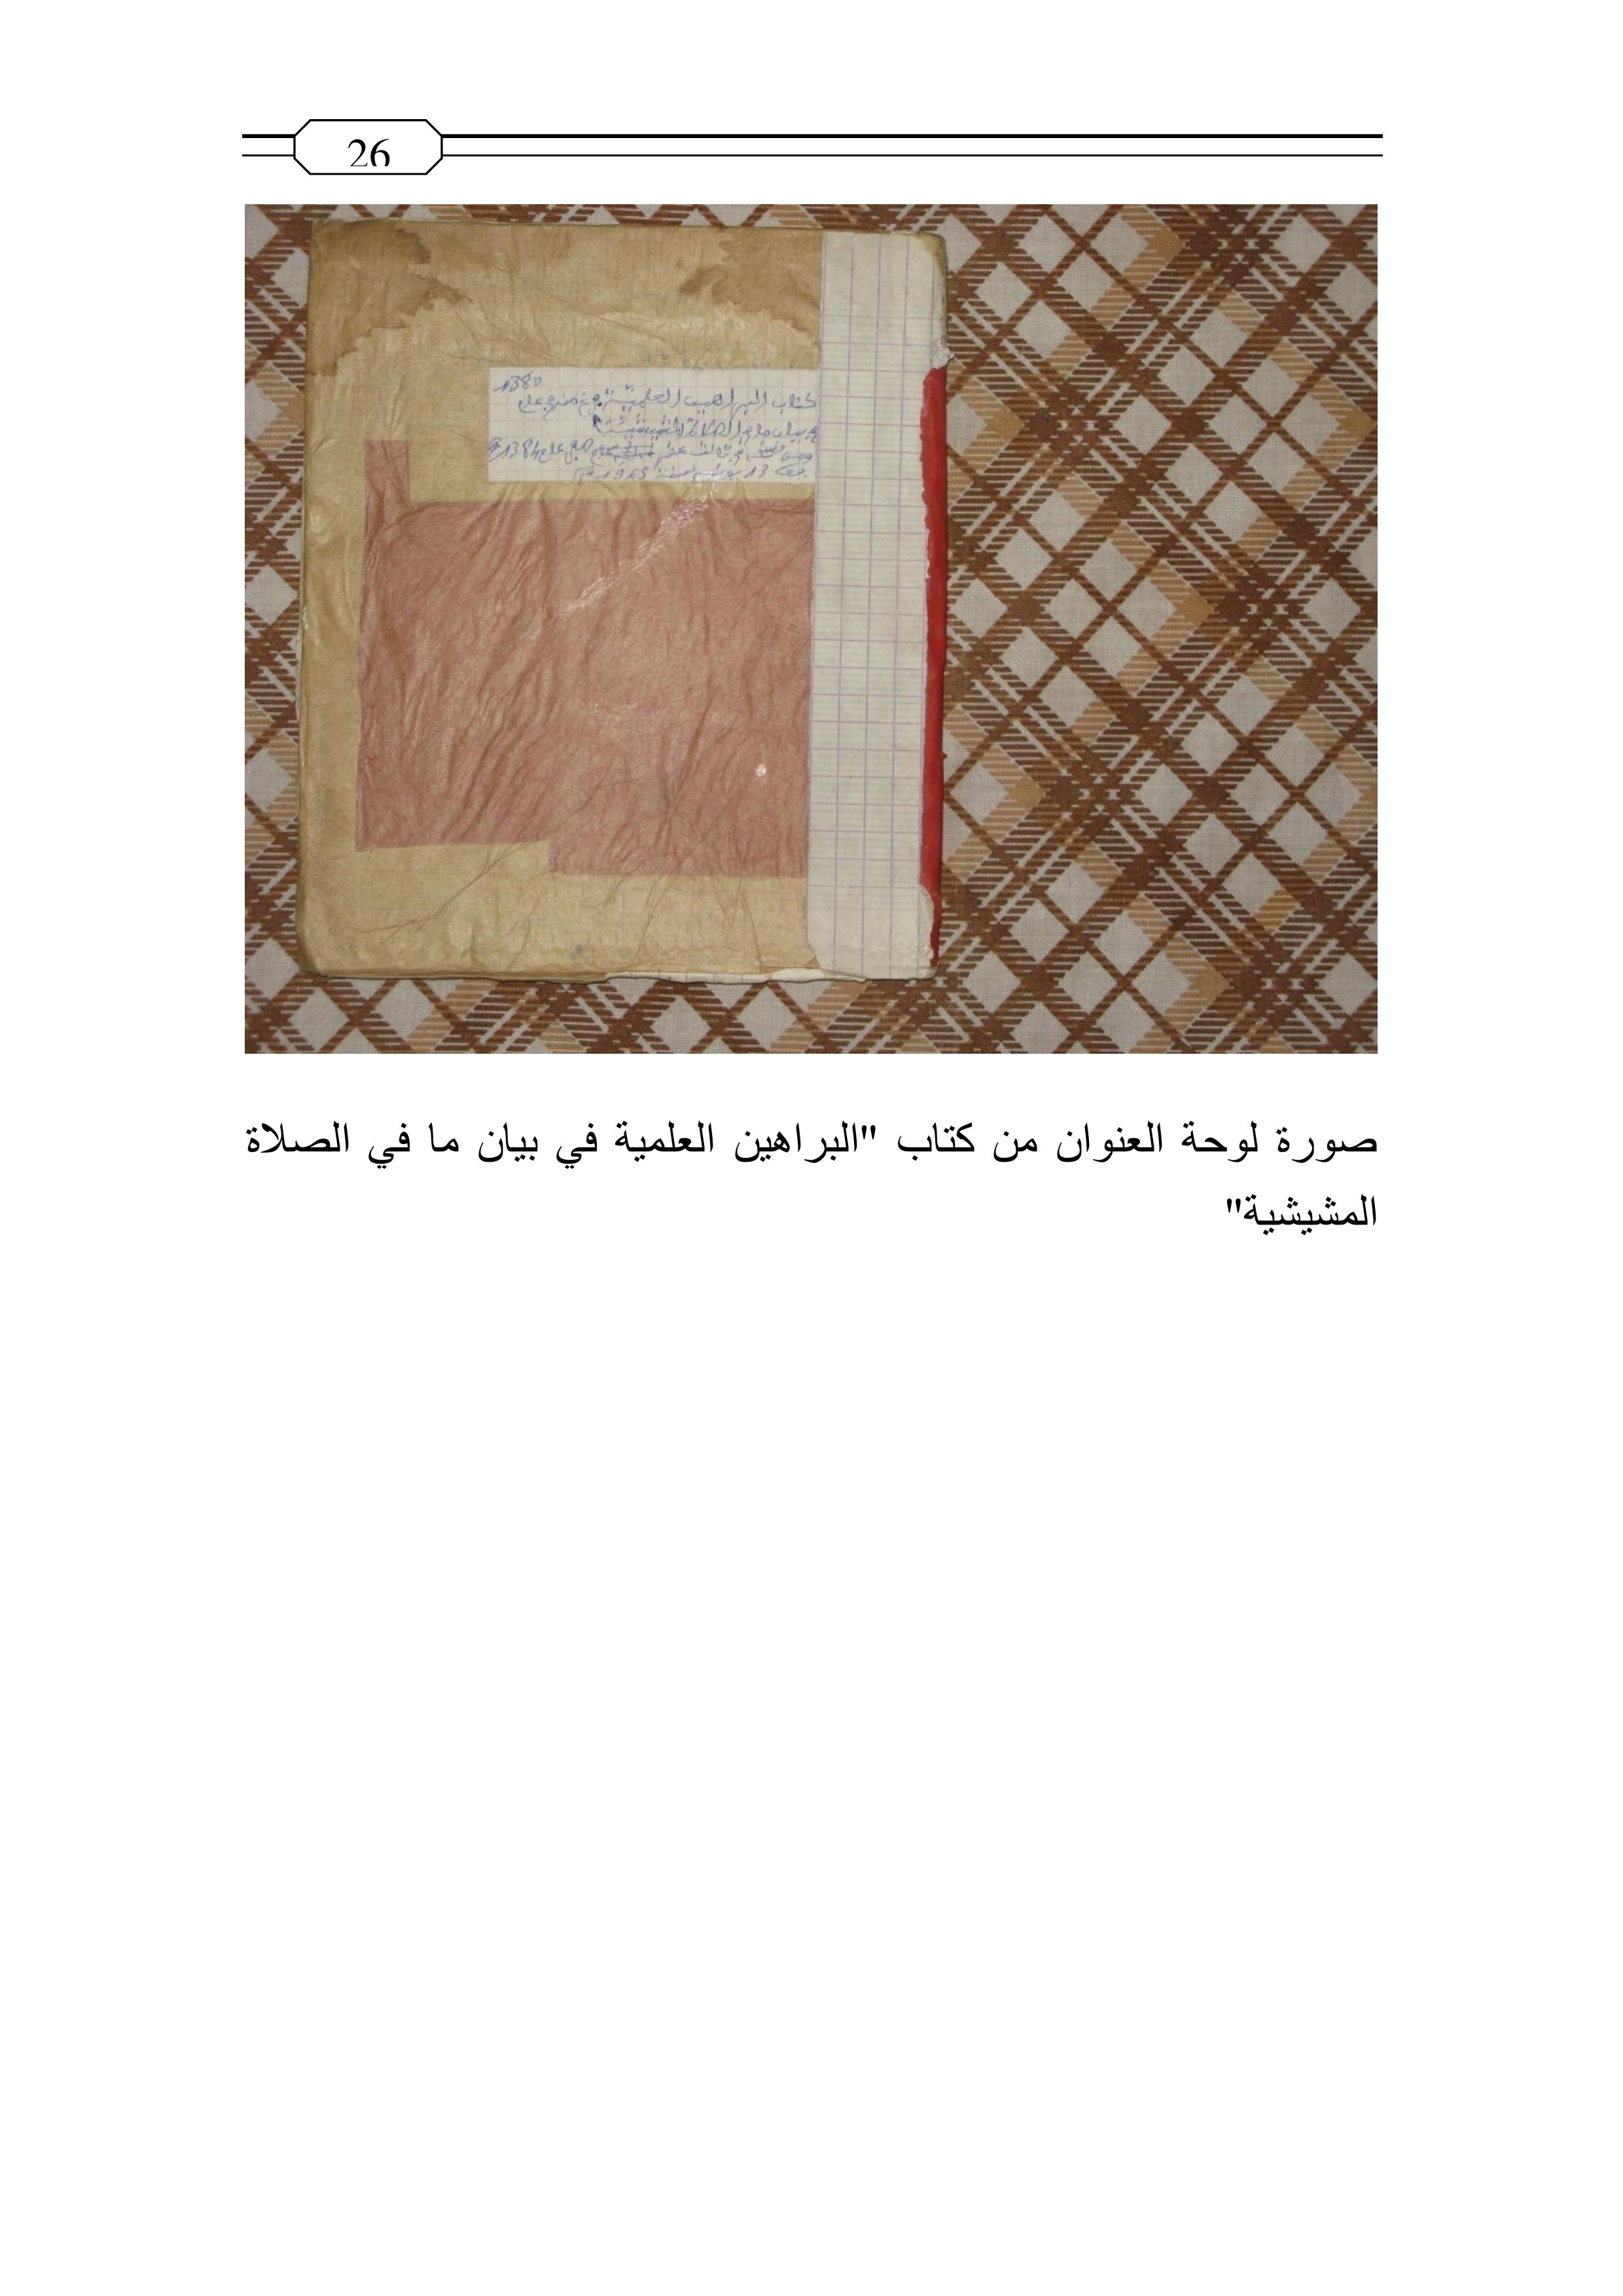 26
1380
كتاب البراهين العلمية
بيان ما في الصلاة المشيشية
1384
13 1965
صورة لوحة العنوان من كتاب "البراهين العلمية في بيان ما في الصلاة
المشيشية"